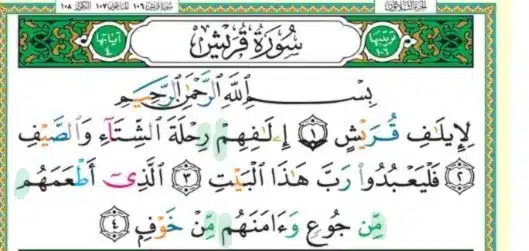 الجزء الثلاثون
سورة قريش ١٠٦ الماعون ١٠٧ الكوثر ١٠٨
ترتيبها ١٠٦ سُورَةُ قُرَيْشٍ آياتها ٤
بِسْمِ ٱللَّهِ ٱلرَّحْمَٰنِ ٱلرَّحِيمِ
لِإِيلَٰفِ قُرَيْشٍ ١ إِۦلَٰفِهِمْ رِحْلَةَ ٱلشِّتَآءِ وَٱلصَّيْفِ
٢ فَلْيَعْبُدُوا۟ رَبَّ هَٰذَا ٱلْبَيْتِ ٣ ٱلَّذِىٓ أَطْعَمَهُم
مِّن جُوعٍ وَءَامَنَهُم مِّنْ خَوْفٍ ٤